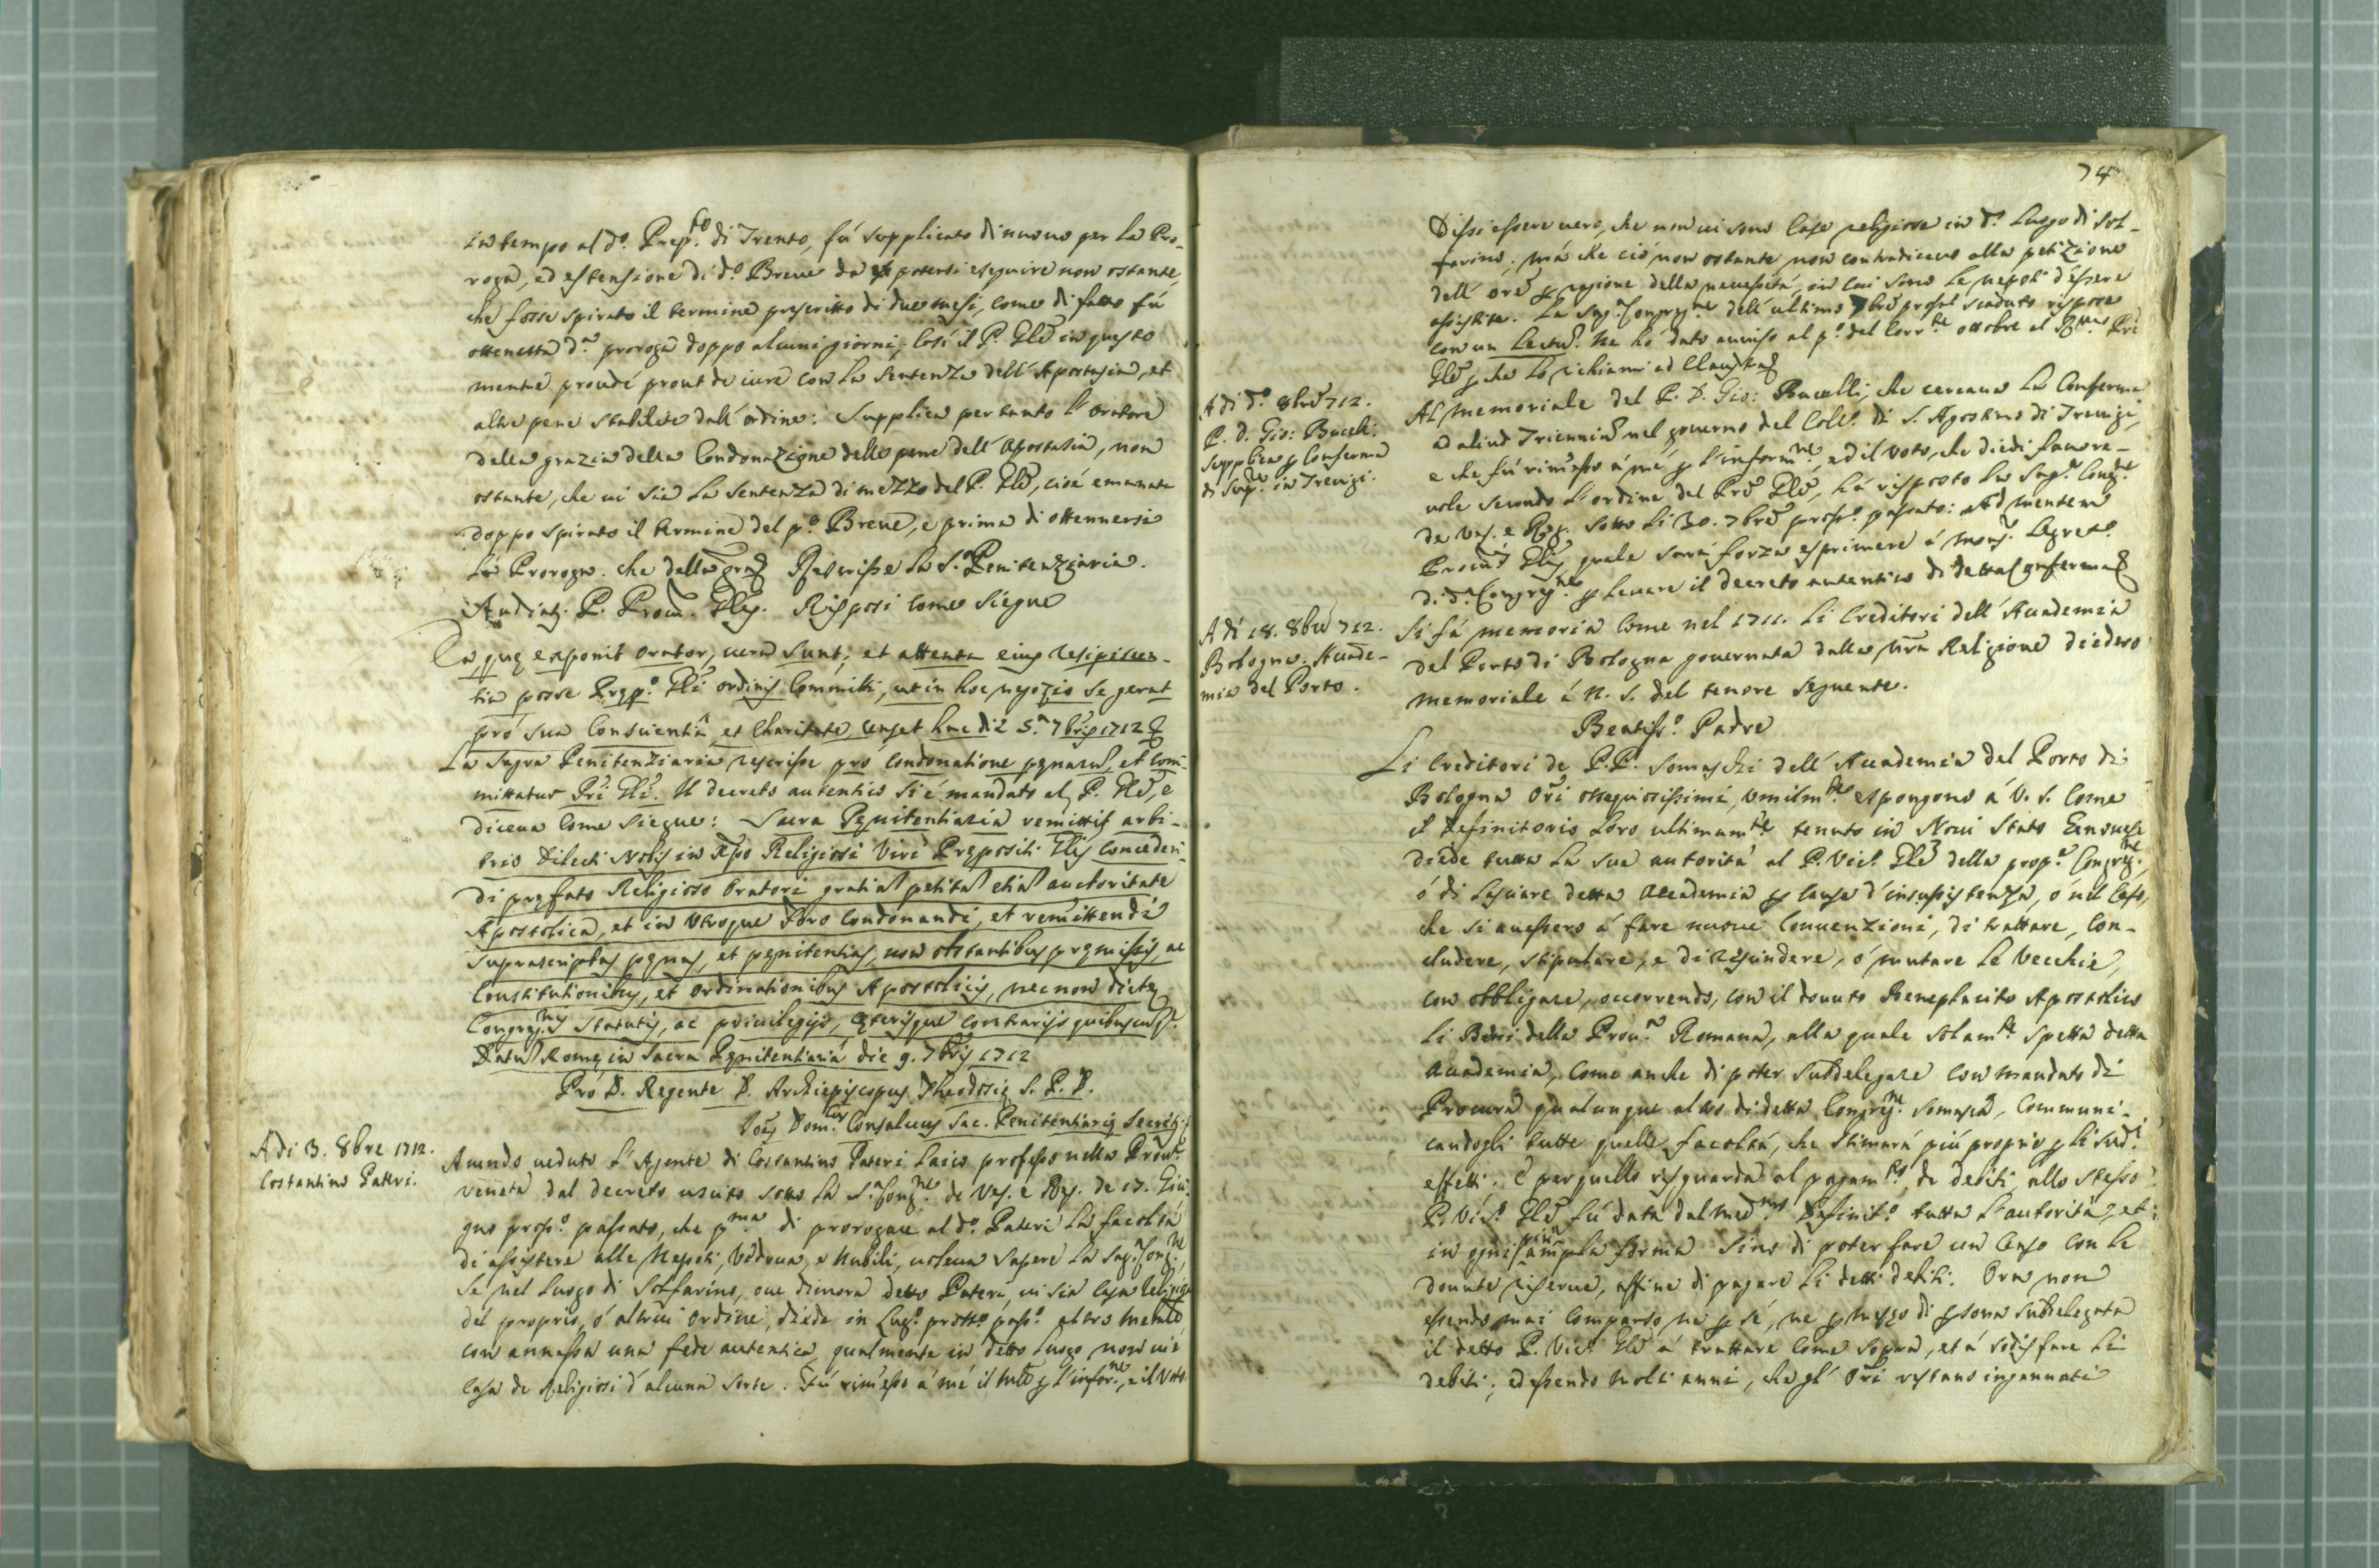 in tempo al d.º Prep.to di Trento, fú supplicato di nuovo per la Pro-
roga, ed estensione di d.º Breve da potersi eseguire non ostante,
che fosse spirato il termine prescritto di due mesi, come di fatto fú
ottenetta d.ª proroga doppo alcuni giorni; Cosí il P. Gl̃e in questo
mentre provdé prout de iure con la sentenza dell'Apostasia, et
altre pene stabilite dall'ordine: Supplica per tanto l'oratore
della grazia della Condonazione delle pene dell'Apostasia, non
ostante, che vi sia la sentenza di mezzo del P. Gl̃e, cioé emanata
doppo spirato il termine del p.º Breve, e prima di ottennersi
la Proroga. che della gra Rescrisse la S.ª Penitenziaria.
Audiat. P. Procur. Glis. Risposi come siegue
Ea que exponit orator, vera sunt; et attenta eius resipiscen-
tia posse Prep.º Gli ordinis Committi, ut in hoc negozio se gerat
pró sua Conscientia, et Charitate, censet hac die 5.ª 7bris 1712
La Sagra Penitenziaria rescrisse pró Condonatione penarum, et Com-
mittatur Pri Gli. Il decreto autentico si é mandato al P. Gl̃e, e
diceva come siegue: Sacra Penitentiaria remittit arbi-
trio dilecti Nobis in Xpo Religiosi Viri Prepositi Glis Conceden-
di prefato Religioso Oratori gratiam petitam etiam auctoritate
Apostolica, et in utroque foro Condonandi, et remittendi
suprascriptas penas, et penitentias, non obstantibus premissis, ac
Constitutionibus, et ordinationibus Apostolicis, necnon dicte
Congreg.nis statutis, ac privilegijs, ceterisque contrarijs quibuscumq.
Datum Rome in Sacra Penitentiaria die 9. 7bris 1712
Pró D. Regente B. Archiepiscopus Theodosie S. P. D.
Ioes Dom.cus Consalvus Sac. Penitentiarie Secrets.
A di 3. 8bre 1712.
Costantino Pateri.
Avendo veduto l'Agente di Costantino Pateri Laico professo nella Prov.
veneta dal decreto uscito sotto la S. Cong.ne de Ves. e Reg. de 17. Giu-
gno pross.º passato, che p.ma di prorogare al d.º Pateri la facoltá
di assistere alle Nepoti, Vedova, e Nubili, voleva sapere la Sag. Cong.ne,
se nel luogo di Solfarino, ove dimora detto Pateri, vi sia casa religiosa
del proprio, ó altrui ordine, diede in Lug.º pass.º altro memle,
con annessa una fede autentica, qualmente in detto luogo non vi é
casa de Religiosi d'alcuna sorte. Fú rimesso á mé il tutto p l'infor.ne, e il Voto.
74
Dissi essere vero, che non vi sono Case religiose in d.º luogo di Sol-
farino; má che ció non ostante non contradicevo alla petizione
dell'ore p ragione della necessitá, in cui sono le nepoti d'essere
assistite. La Sag. Congreg.ne dell'ultimo 7bre pross. scaduto rispose
con un Lectum. Ne hó dato avviso al p.º del Corr.te ottobre al Rmo Pre
Gl̃e p che lo richiami ad Claustra
A di d.º 8bre 712.
P. D. Gio: Bucelli.
supplica p Conferma
di Sup.re in Trevigi.
Al memoriale del P. D. Gio: Bucelli, che cercava la Conferma
ad aliud Triennium nel governo del Coll.º di S. Agostino di Trevigi,
e che fú rimesso á mé p l'inform.ne, ed il voto, che diedi favore-
vole secondo l'ordine del Pre Gl̃e, há risposto la Sag. Cong.ne
de Ves. e Reg. sotto li 30. 7bre pross.º passato: Ad mentem
Procuris Glis, quale sará forza esprimere á Mons. Segret.º
di d.ª Congreg.ne p levare il decreto autentico di detta Conferma
A di 18. 8bre 712.
Bologna. Acade-
mia del Porto.
Si fá memoria come nel 1711. li Creditori dell'Academia
del Porto di Bologna governata dalla nra Religione diedero
memoriale á N. S. del tenore seguente.
Beatiss.º Padre
Li Creditori de P.P. Somaschi dell'Academia del Porto di
Bologna Ori osseqiosissimi, Umilm.te espongono á V. S. come
il Definitorio loro ultimam.te tenuto in Novi Stato Genovese
diede tutta la sua autoritá al P. Vic.º Gl̃e della prop.ª Congreg.ne,
ó di lasciare detta Academia p causa d'insussistenza, ó nel Caso,
che si avesse á fare nuove Convenzioni, di trattare, Con-
cludere, stipulare, e di rescindere, ó mutare le Vecchie,
con obbligare, occorrendo, con il dovuto Beneplacito Apostolico
li Beni della Prov.ª Romana, alla quale solam.te spetta detta
Academia, come anche di poter subdelegare con mandato di
Procura qualunque altro di detta Congreg.ne Somasca, Communi-
candogli tutte quelle facoltá, che stimará piú proprio p li sud.i
effetti. E per quello risguarda al pagam.to de debiti, allo stesso
P. Vic.º Gl̃e fú data dal med.mo Definit.º tutta l'autoritá, et
in ogni piú ampla forma sino di poter fare un Censo con le
dovute riserve, affine di pagare li detti debiti. Ora non
essendo mai comparso, né p sé, né p mezzo di psona subdelegata
il detto P. Vic.º Gl̃e á trattare come sopra, et á sodisfare li
debiti; ed essendo molti anni, che gl'Ori restano ingannati